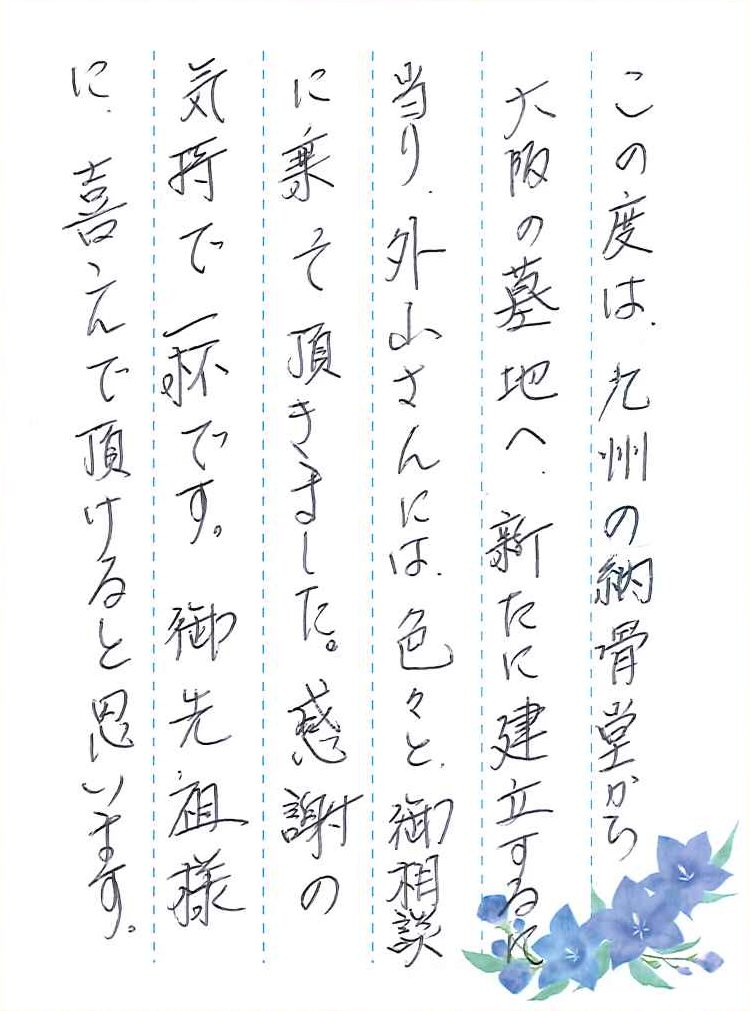 この度は、九州の納骨堂から
大阪の墓地へ、新たに建立するに
当り、外山さんには、色々と、御相談
に乗って頂きました。感謝の
気持で一杯です。 御先祖様
に、喜んで頂けると思います。